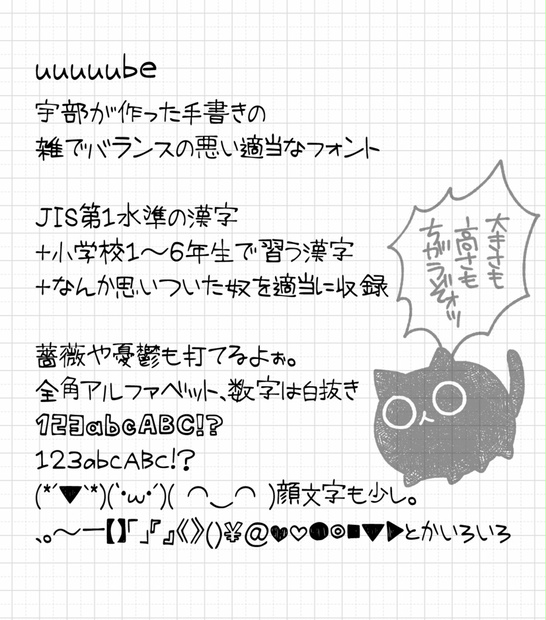 uuuuube
宇部が作った手書きの
雑でバランスの悪い適当なフォント
JIS第1水準の漢字
+小学校1〜6年生で習う漢字
+なんか思いついた奴を適当に収録
大きさも
高さも
ちがうぞォッ
薔薇や憂鬱も打てるよぉ。
全角アルファベット、数字は白抜き
１２３ａｂｃＡＢＣ！？
123abcABC!?
(*´▼`*)(`･ω･´)( ◠‿◠ )顔文字も少し。
、。〜ー【】「」『』《》()¥@♥♡●◎■▼▶とかいろいろ